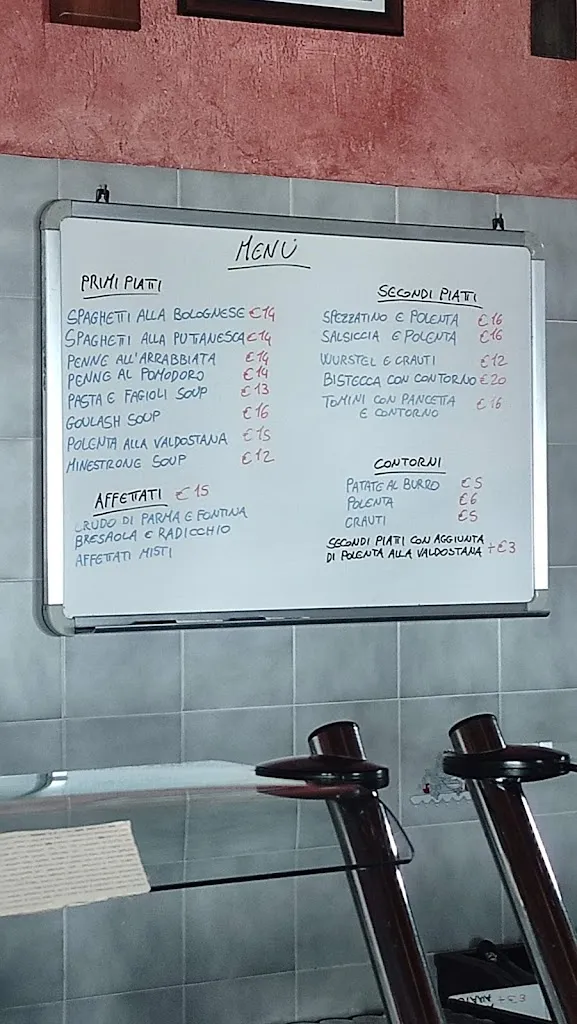 MENÙ
PRIMI PIATTI
SPAGHETTI ALLA BOLOGNESE €14
SPAGHETTI ALLA PUTTANESCA €14
PENNE ALL'ARRABBIATA €14
PENNE AL POMODORO €14
PASTA E FAGIOLI SOUP €13
GOULASH SOUP €16
POLENTA ALLA VALDOSTANA €15
MINESTRONE SOUP €12
AFFETTATI €15
CRUDO DI PARMA E FONTINA
BRESAOLA E RADICCHIO
AFFETTATI MISTI
SECONDI PIATTI
SPEZZATINO E POLENTA €16
SALSICCIA E POLENTA €16
WURSTEL E CRAUTI €12
BISTECCA CON CONTORNO €20
TOMINI CON PANCETTA €16
E CONTORNO
CONTORNI
PATATE AL BURRO €5
POLENTA €6
CRAUTI €5
SECONDI PIATTI CON AGGIUNTA
DI POLENTA ALLA VALDOSTANA +€3